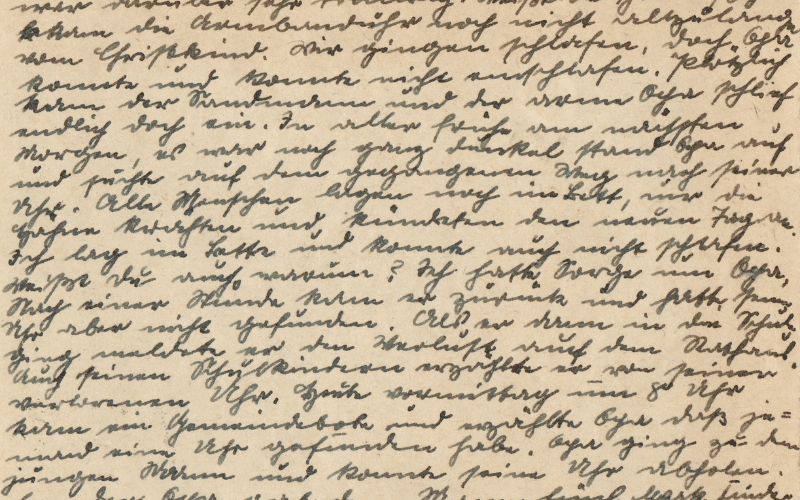 war darüber sehr
bekam die Armbanduhr noch nicht allzulange
vom Christkind. Wir gingen schlafen, doch Opa
konnte und konnte nicht einschlafen. Plötzlich
kam der Sandmann und der arme Opa schlief
endlich doch ein. In aller frühe am näissten
Morgen, es war noch ganz dunkel stand Opa auf
und suchte auf dem gegangenen Weg nach seiner
Uhr. Alle Menschen lagen noch im Bett, nur die
Hähne krähten und kündeten den neuen Tag an.
Ich lag im Bette und konnte auch nicht schlafen.
Weißt Du auch warum? Ich hatte Sorge um Opa,
Nach einer Stunde kam er zurück und hatte seine
Uhr aber nicht gefunden. Als er dann in die Schule
ging meldete er den Verlust auf dem Rathaus.
Auch seinen Schulkindern erzählte er von seiner
verlorenen Uhr. Heute vormittag um 8 Uhr
kam ein Gemeindebote und erzählte Opa daß je=
mand eine Uhr gefunden habe. Opa ging zu dem
jungen Mann und konnte seine Uhr abholen.
Opa Mann